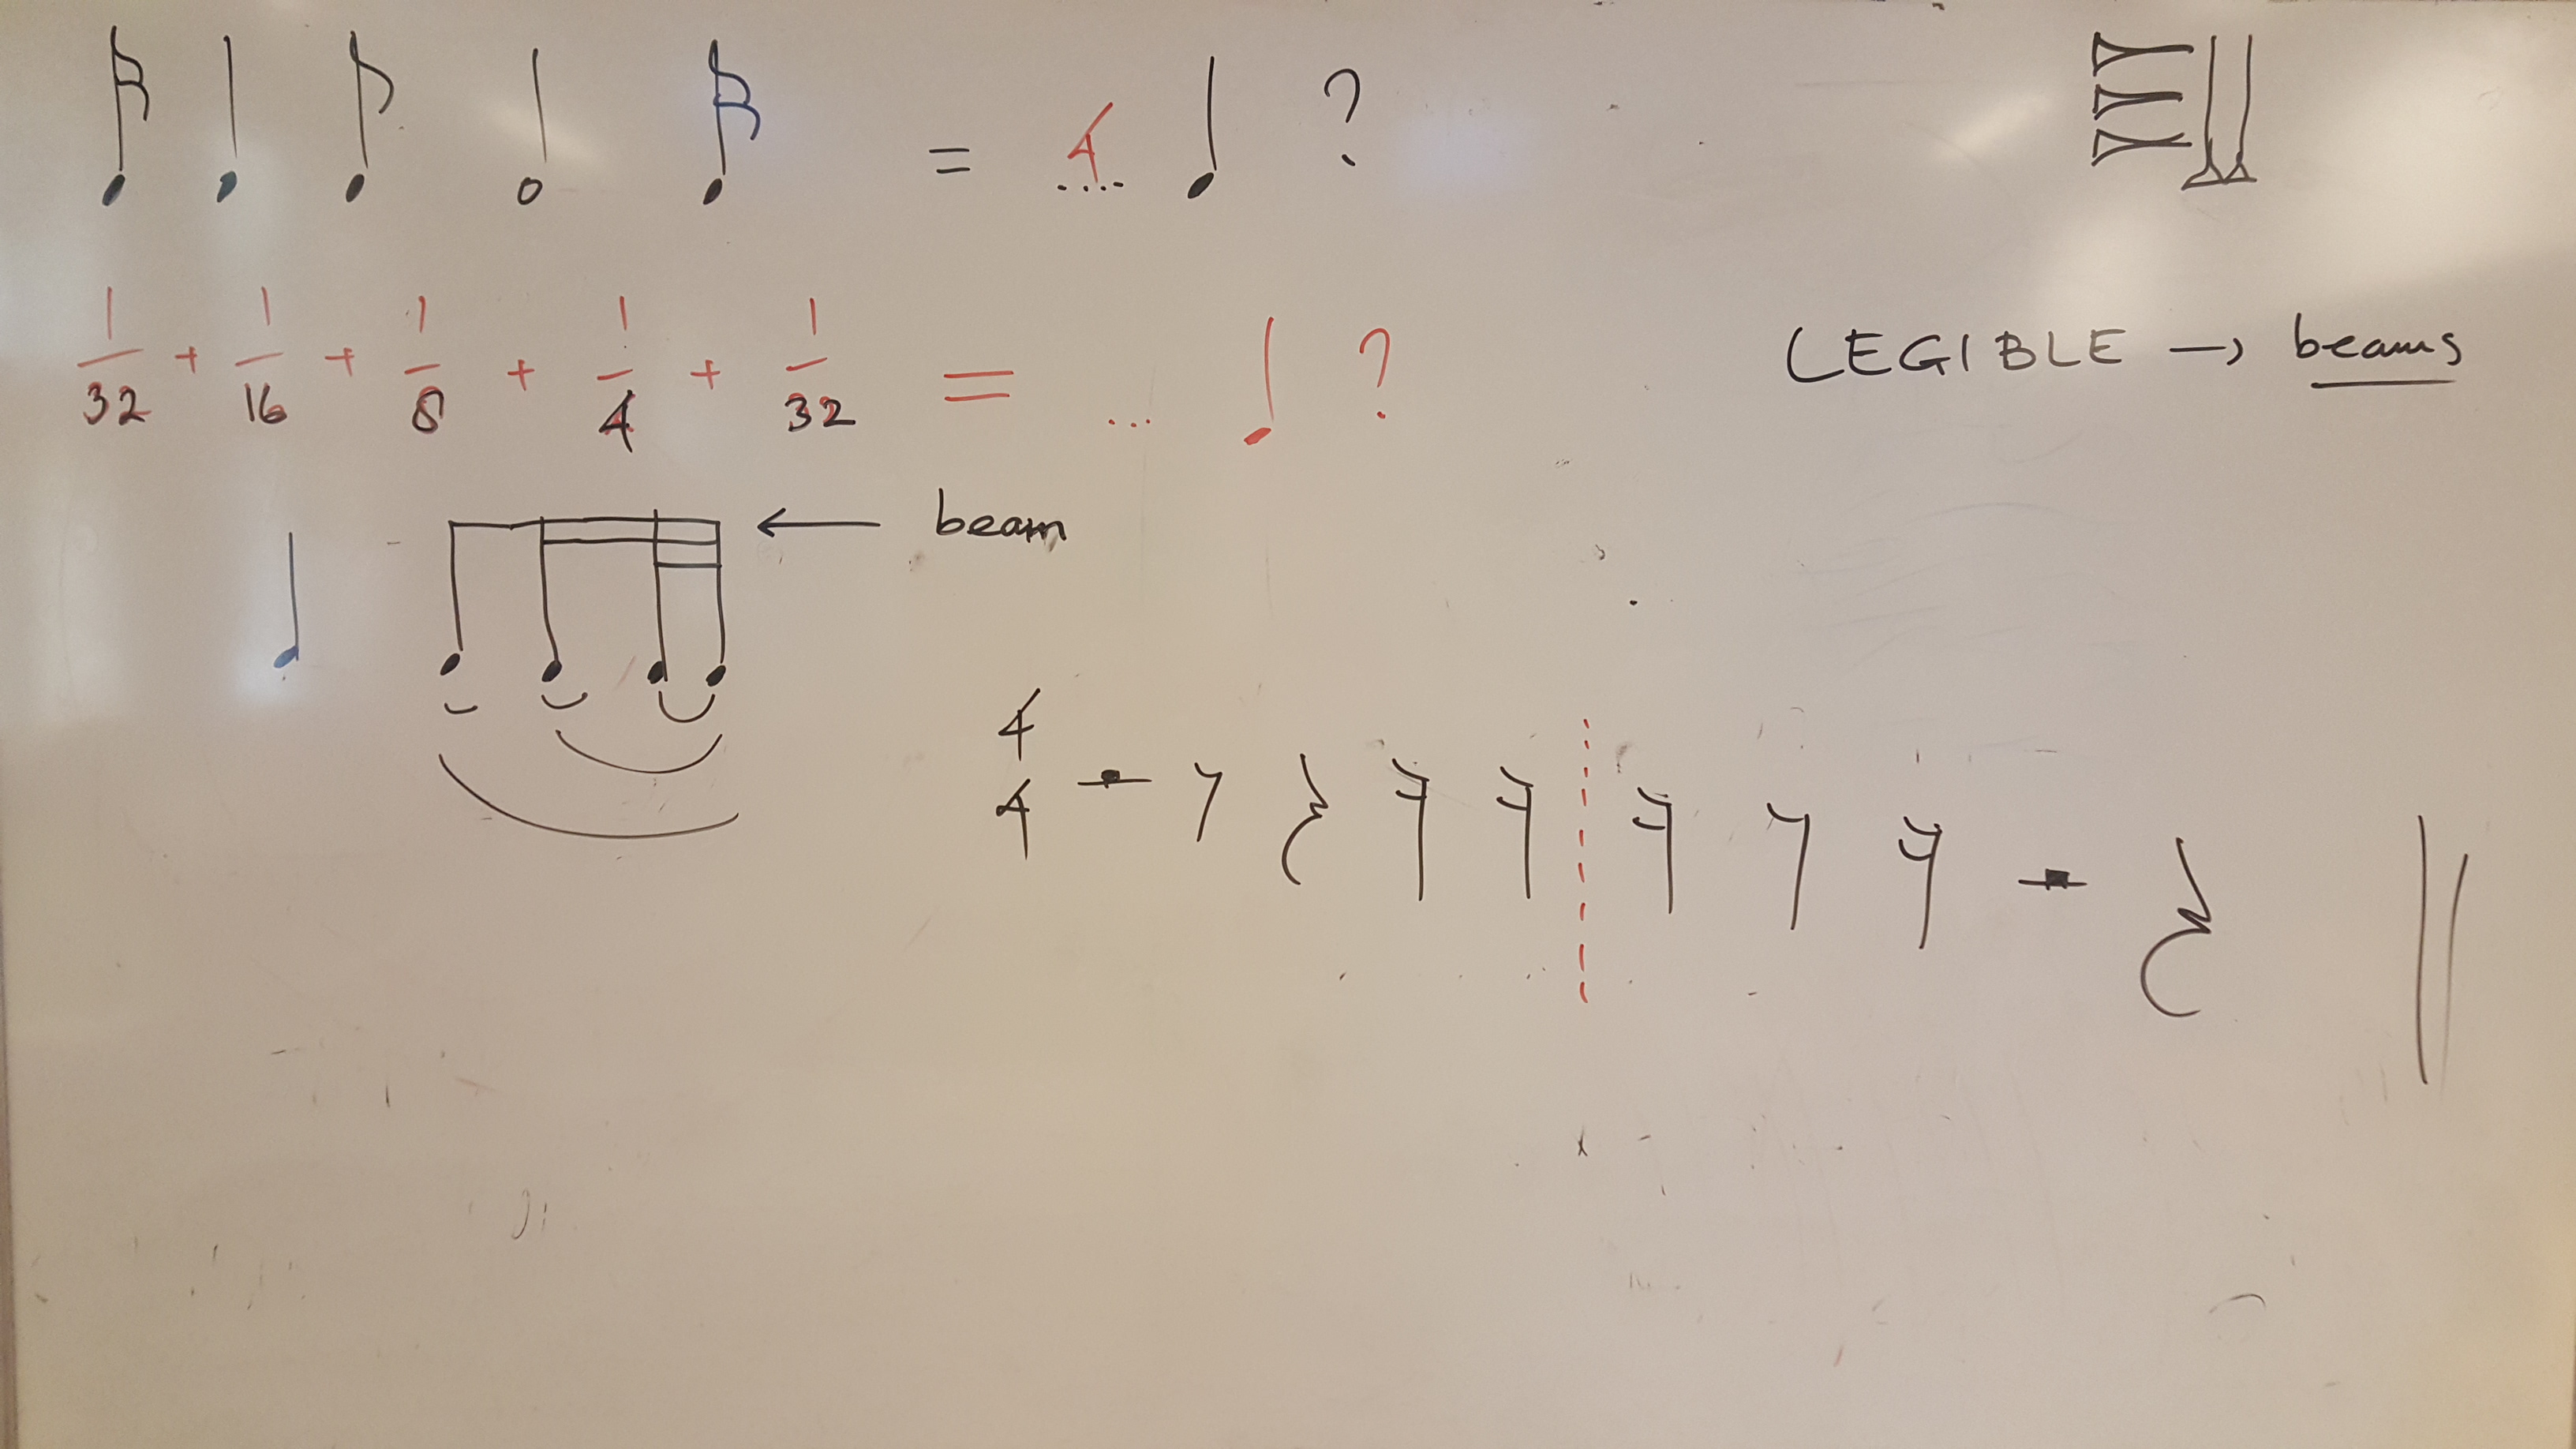 = 4 .... ?
1/32 + 1/16 + 1/8 + 1/4 + 1/32 = ... ?
LEGIBLE → beams
← beam
4
4